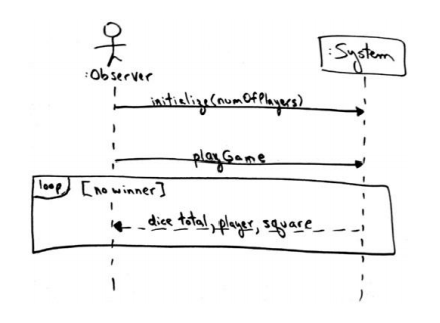 :System
:Observer
initialize(numOfPlayers)
playGame
loop
[no winner]
dice total, player, square